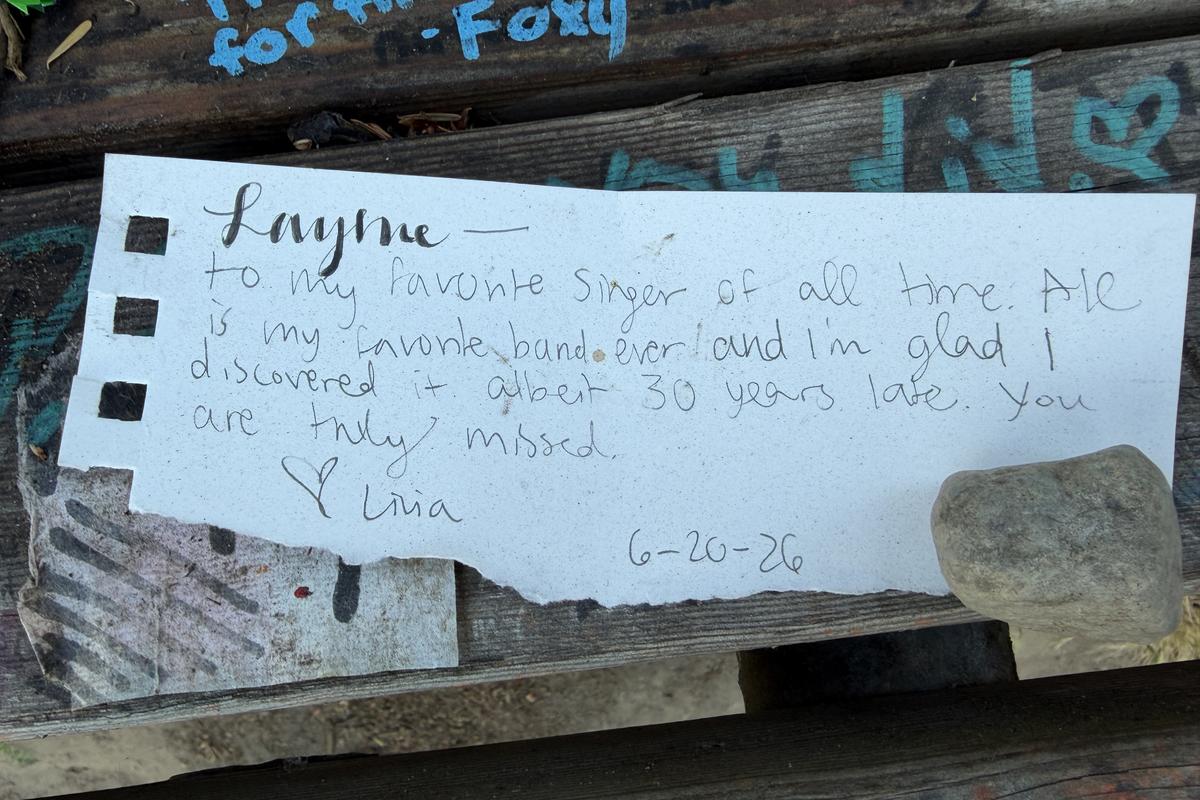 for
- Foxy
Layne —
to my favorite singer of all time. AIC
is my favorite band ever and I'm glad I
discovered it albeit 30 years late. You
are truly missed.
♡ Livia
6-20-26